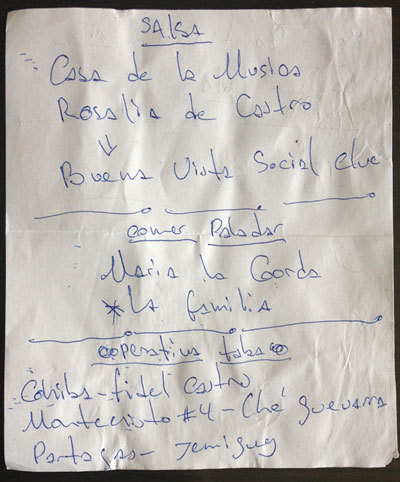 SALSA
Casa de la Musica
Rosalia de Castro
Buena Vista Social clue
comer Paladar
Maria la Gorda
*La familia
coperativa tabaco
Cohiba - fidel castro
Montecristo #4 - Ché guevarra
Partagas - Jemiguey